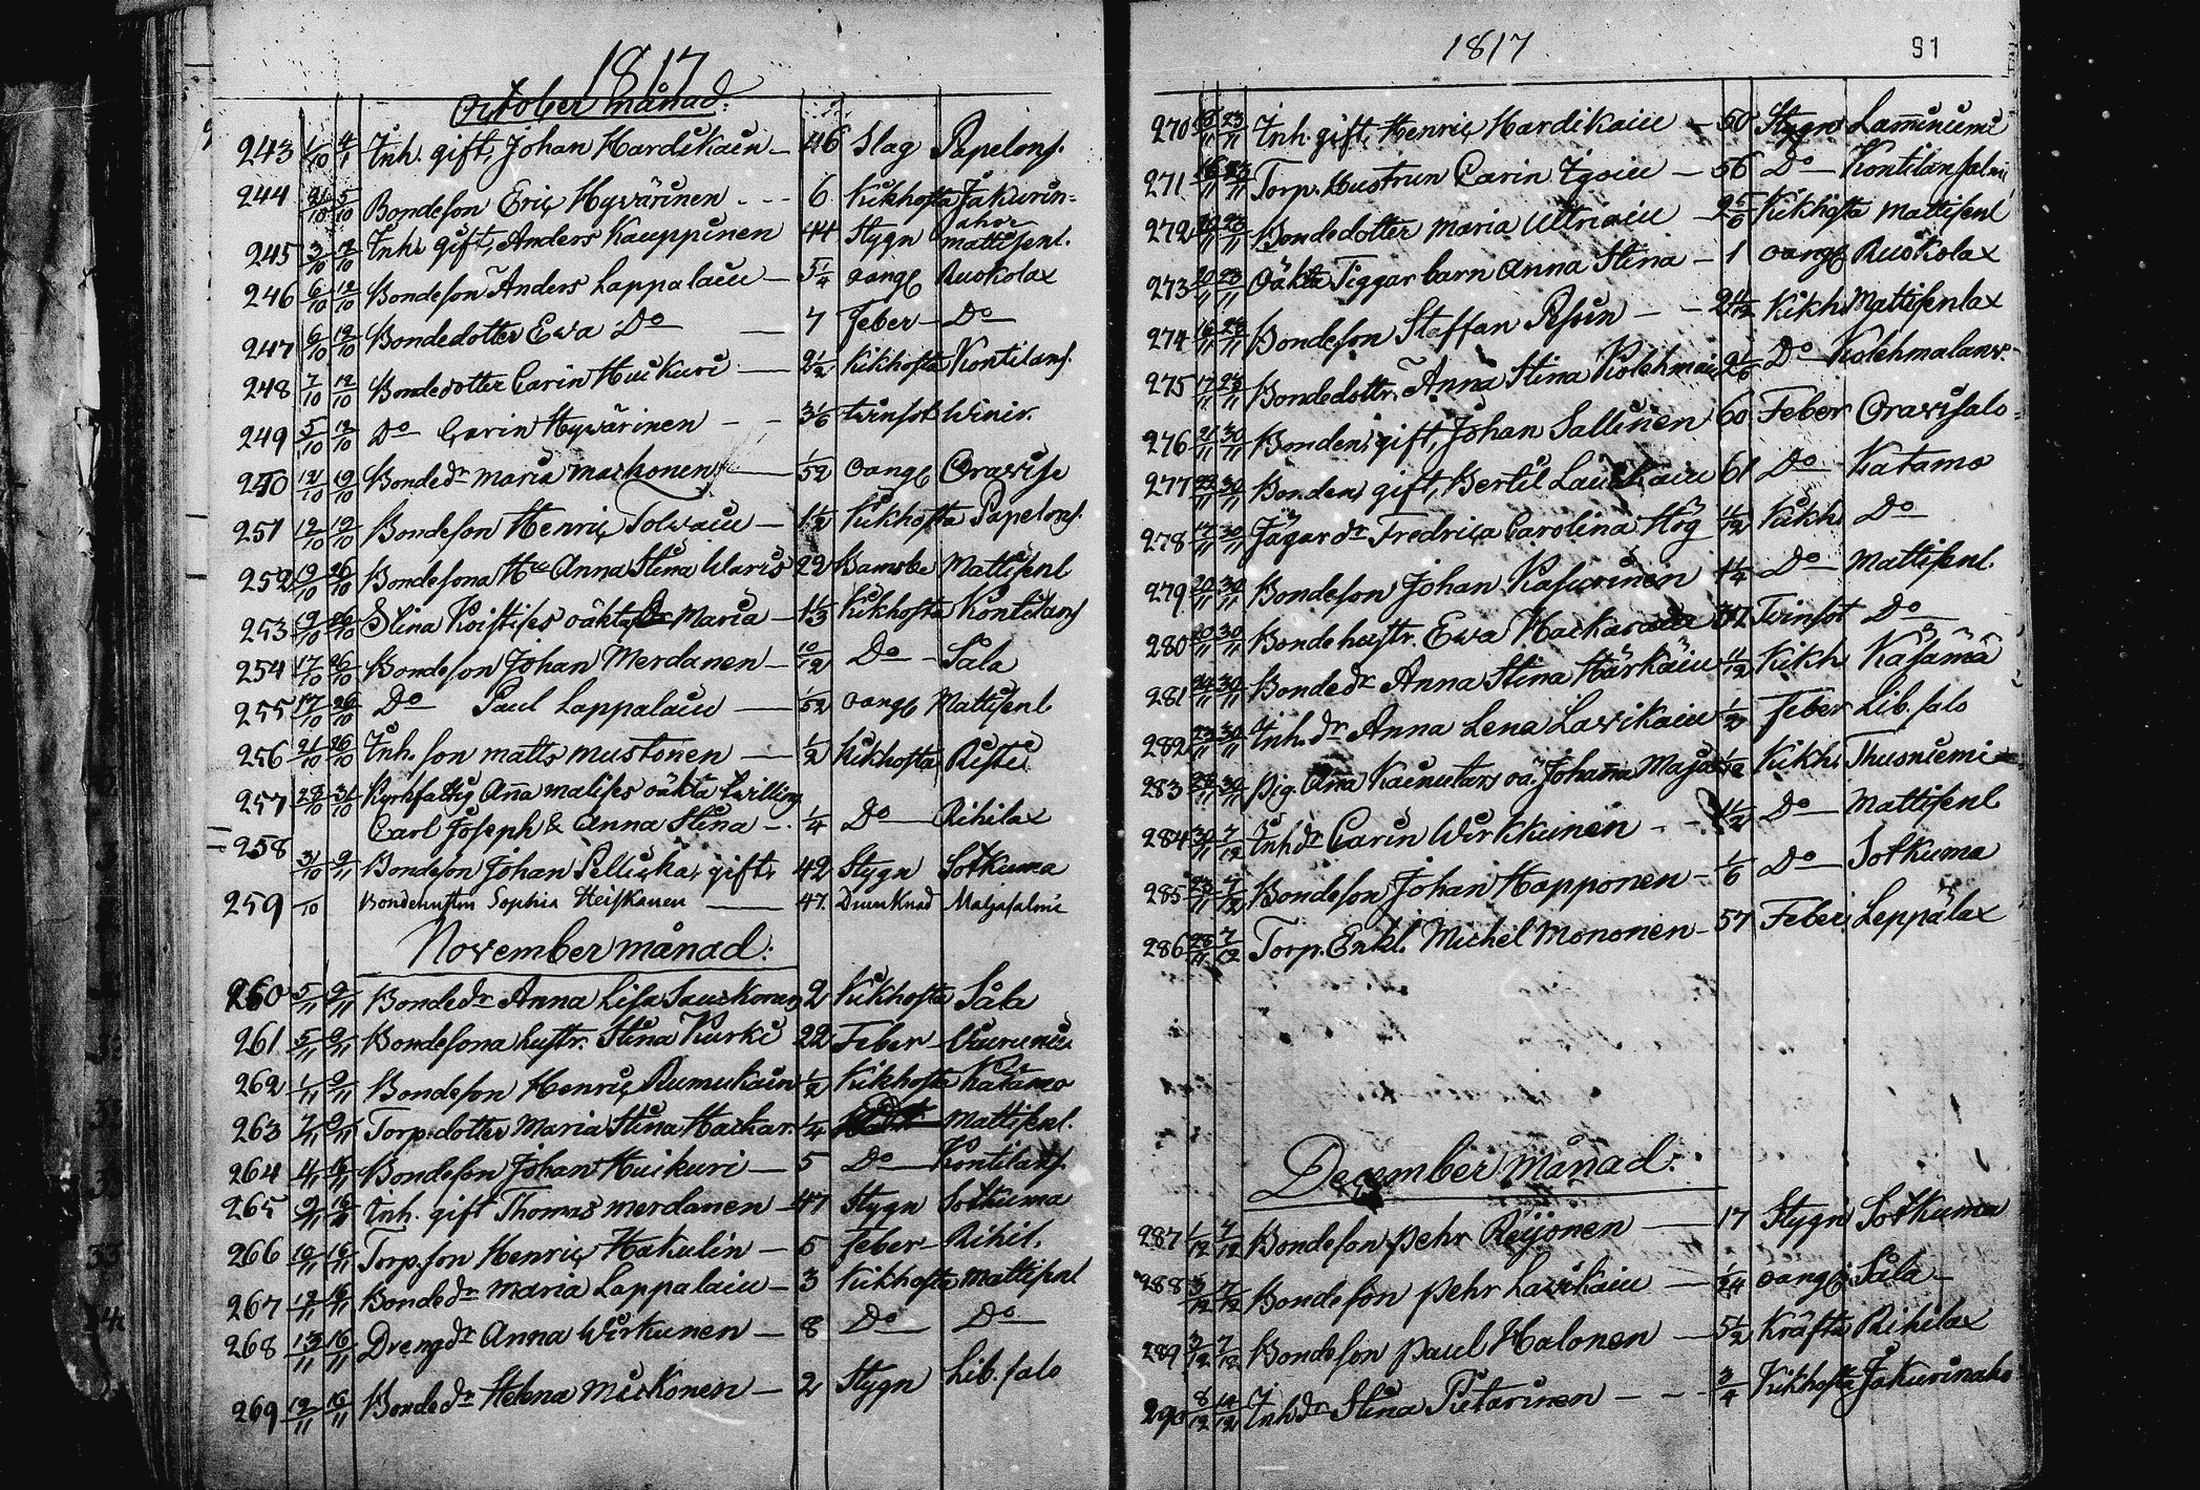 1817
October månad:
243 1/10 4/1 Inh. gift, Johan Hardikain – 46 Slag Papelons.
244 21/10 5/10 Bondeson Eric Hyvärinen - - - 6 Kikhosta Jakurin=
aho
245 3/10 12/10 Inh. gift, Anders Kauppinen 44 Stygn Mattisenl.
246 6/10 12/10 Bondeson Anders Lappalain – 5 1/4 oangf Ruokolax
247 6/10 12/10 Bondedotter Ewa Do — 7 Feber Do
248 7/10 12/10 Bondedotter Carin Huikuri — 2 1/2 Kikhosta Kontilans.
249 5/10 12/10 Do Carin Hyvärinen - - 3 1/6 twinsot Winiv.
250 12/10 19/10 Bonde dr Maria — 1/52 oangf Oravise
251 12/10 19/10 Bondeson Henric Tolvain – 1 1/2 Kikhosta Papelons.
252 19/10 26/10 Bondesona Hu Anna Stina 22 Barnsbe Mattisenl
253 19/10 26/10 Stina oäkta Dr Maria – 1 1/3 Kikhosta Kontilans
254 17/10 26/10 Bondeson Johan Merdanen – 10/12 Do Såla
255 17/10 26/10 Do Paul Lappalain — 1/52 oangf Mattisenl
256 21/10 26/10 Inh. son Matts Mustonen — 1/2 Kikhosta Riste
257 28/10 31/10 Kyrkfattig Aña oäkta twilling
258 Carl Joseph & Anna Stina – 1/4 Do Rihilax
31/10 9/11 Bondeson Johan gift, 42 Stygn Sotkuma
259 /10 Bondehustru Sophia Heiskanen — 47. Drunknad Maljasalmi
November månad:
260 5/11 9/11 Bonde dr Anna Lisa 2 Kikhosta Såla
261 5/11 9/11 Bondesona hustr. Stina Kurki 22 Feber
262 1/11 9/11 Bondeson Henric 1/2 Kikhosta Katamo
263 7/11 9/11 Torp.dotter Maria Stina Hackar. 1/4 Mattisenl.
264 4/11 16/11 Bondeson Johan Huikuri – 5 Do Kontilans.
265 9/11 16/11 Inh. gift Thomas Merdanen – 47 Stygn Sotkuma
266 10/11 16/11 Torp. son Henric Hakulin – 5 Feber – Rihil.
267 12/11 16/11 Bonde dr Maria Lappalain – 3 Kikhosta Mattisenl
268 13/11 16/11 Dreng dr Anna Wirkunen – 8 Do Do
269 12/11 16/11 Bonde dr Helena – 2 Stygn Lib. salo
1817 91
270 23/11 Inh. gift, Henric Hardikain – 50 Stygn Lamiñiemi
271 16/11 23/11 Torp. Hustrun Carin – 56 Do Kontilansalmi
272 20/11 23/11 Bondedotter Maria Ultriain – 2 5/6 Kikhosta Mattisenl
273 20/11 23/11 Oäkta Tiggar barn Anna Stina – 1 oangf Ruokolax
274 16/11 23/11 Bondeson Staffan - - 2 Kikh. Mattisenlax
275 17/11 23/11 Bondedottr. Anna Stina Kolehmain 2 1/6 Do Kolehmalanv.
276 21/11 30/11 Bonden, gift, Johan Sallinen 60 Feber Oravisalo=
277 30/11 Bonden, gift, Bertil 61 Do Katamo
278 17/11 30/11 Jägar dr Fredrica Carolina Hög Kikh. Do
279 20/11 30/11 Bondeson Johan Kasurinen 1 1/4 Do Mattisenl.
280 20/11 30/11 Bonde hustr. Ewa 37 Twinsot Do
281 24/11 30/11 Bonde dr Anna Stina Härkäin Kikh.
282 23/11 30/11 Inh. dr Anna Lena Lavikain 1/2 Feber Lib. salo
283 30/11 Pig. Aña oä. Johaña Maja Kikh. Thusniemi
284 30/11 7/12 Inh dr Carin Wirkkuinen - - 1 1/2 Do Mattisenl
285 7/12 Bondeson Johan Happonen – 1/6 Do Sotkuma
286 7/12 Torp. Enkl. Michel Mononen – 57 Feber Leppälax
December månad:
287 1/12 7/12 Bondeson Pehr Reijonen — 17 Stygn Sotkuma
288 3/12 7/12 Bondeson Pehr Lavikain — 1/24 oangf Såla –
289 3/12 7/12 Bondeson Paul Halonen — 5 1/2 Kräfta Rihilax
290 8/12 14/12 Inh dr Stina Pitarinen - - 3/4 Kikhosta Jakurinaho